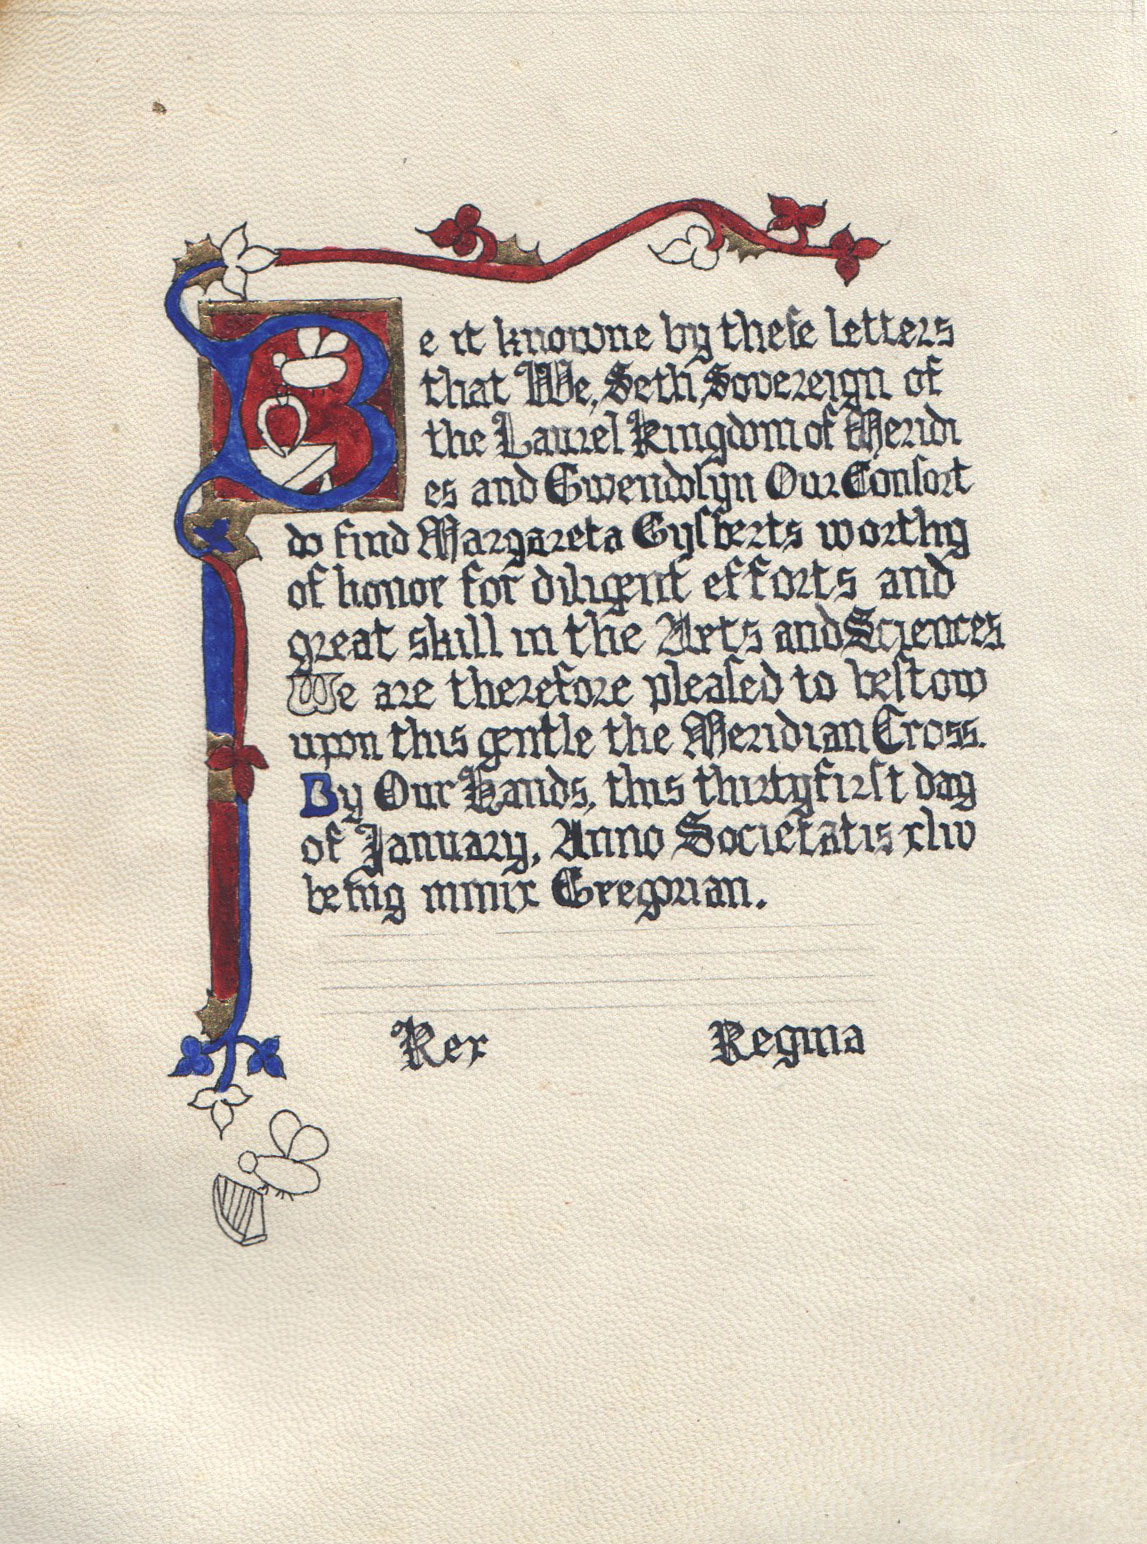 Be it knowne by theſe letters
that We, Seth, Sovereign of
the Laurel Kingdom of Meridi
es and Gwendolyn Our Conſort
do find Margareta Gyſberts worthy
of honor for diligent efforts and
great skill in the Arts and Sciences
We are therefore pleaſed to beſtow
upon this gentle the Meridian Cross.
By Our Hands, this thirtyfirſt day
of January, Anno Societatis xliv
being mmix Gregorian.
Rex Regina